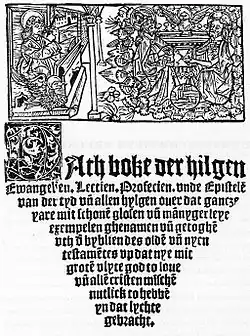 Dath boke der hilgen
Ewangelien, Lectien, Profecien, vnde Epistelē
van der tyd vn̄ allen hylgen ouer dat gantze
yare mit schonē glosen vn̄ mānygerleye
exempelen ghenamen vn̄ getoghē
vth d' byblien des oldē vn̄ nyen
testamētes vp dat nye mit
grotē vlyte god to loue
vn̄ allē cristen mīschē
nutlick to hebbē
yn dat lychte
gebracht.